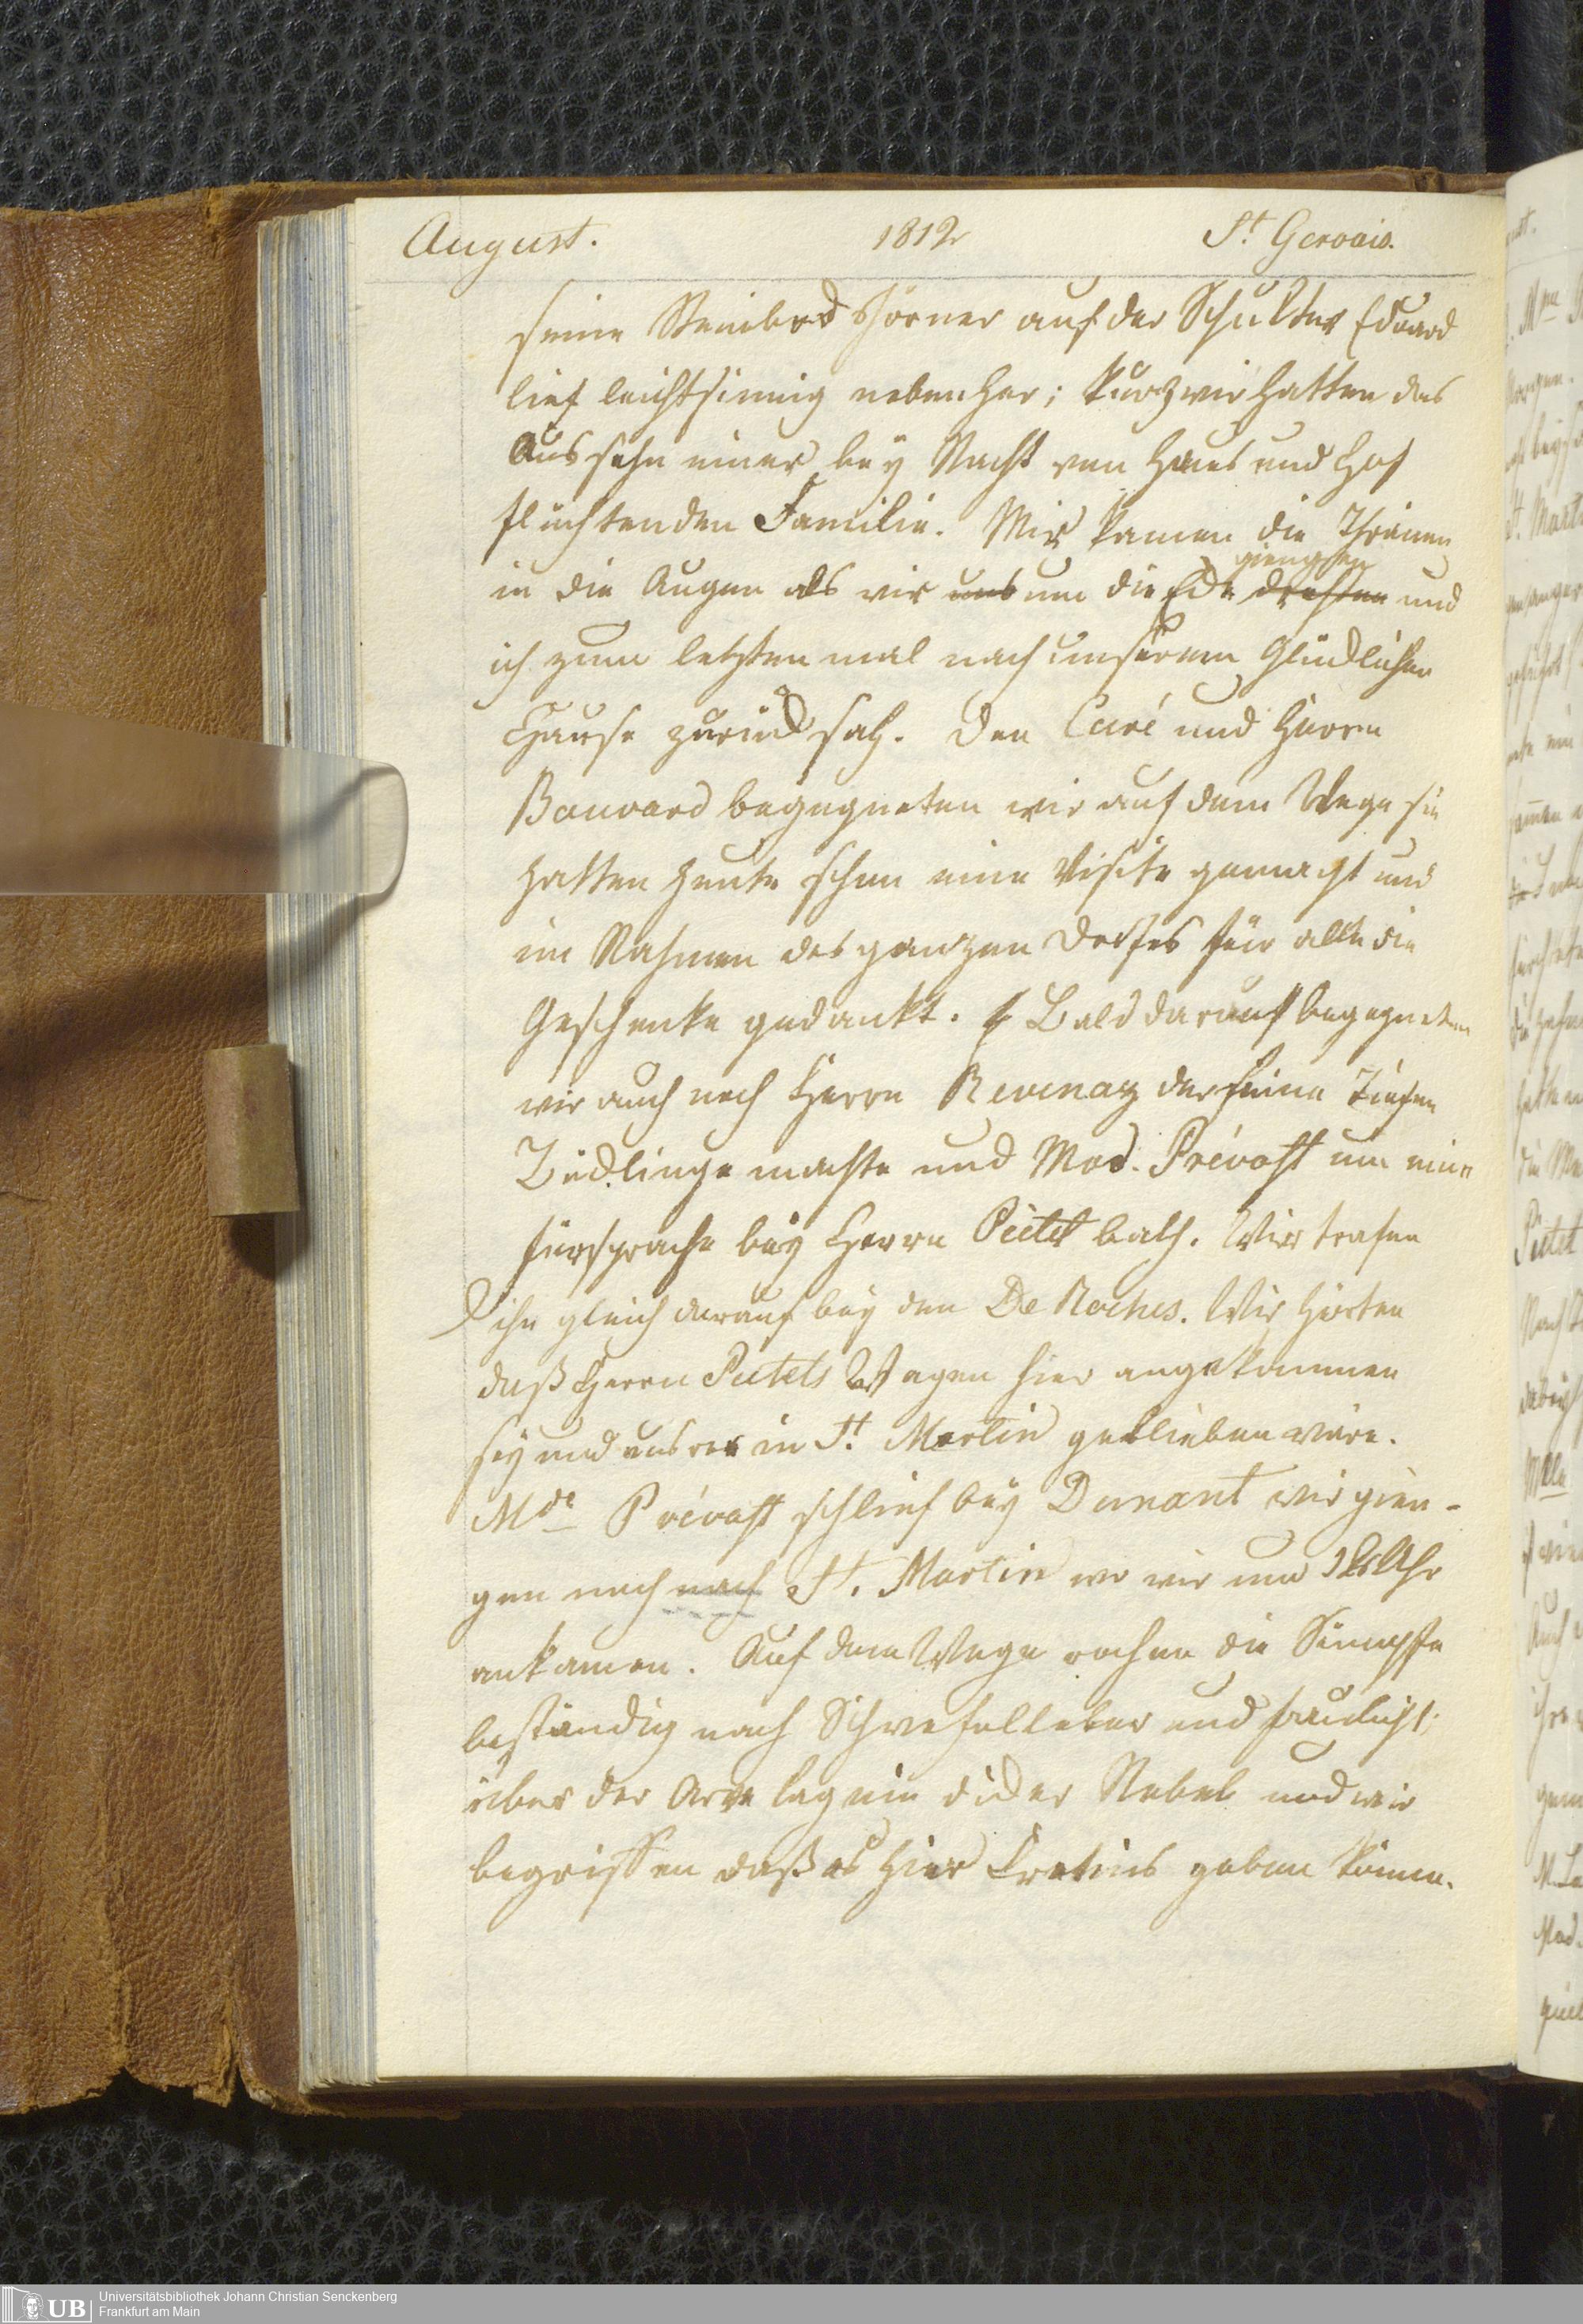 August. 1812 St Gervais.
seine Steinbock Hörner auf der Schulter Eduard
lief leichtsinnig nebenher; kurz wir hatten das
Aussehn einer bey Nacht von Haus und Hof
flüchtenden Familie. Mir kamen die Thränen
giengen
in die Augen als wir uns um die Ecke drehten und
ich zum letzten mal nach unserem Glücklichen
Hause zurück sah. Den Curé und Herrn
Bouvard begegneten wir auf dem Wege sie
hatten heute schon eine Visite gemacht und
im Nahmen des ganzen Dorfes für alle die
Geschenke gedankt. Bald darauf begegneten
wir auch noch Herrn Revenaz der seine tiefen
Bücklinge machte und Mad. Prévost um eine
fürsprache bey Herrn Pictet bath. Wir trafen
ihn gleich darauf bey den De Roches. Wir hörten
daß Herrn Pictets Wagen hier angekommen
sey und unsrer in St. Martin geblieben wäre.
Mde Prévost schlief bey Dunant wir gien-
gen noch nach St. Martin wo wir um Uhr
ankamen. Auf dem Wege rochen die Sümpfe
beständig nach Schwefelleber und faulicht;
über der Arve lag ein dicker Nebel und wir
begriffen daß es hier Cretins geben könne.
Universitätsbibliothek Johann Christian Senckenberg
Frankfurt am Main
UB